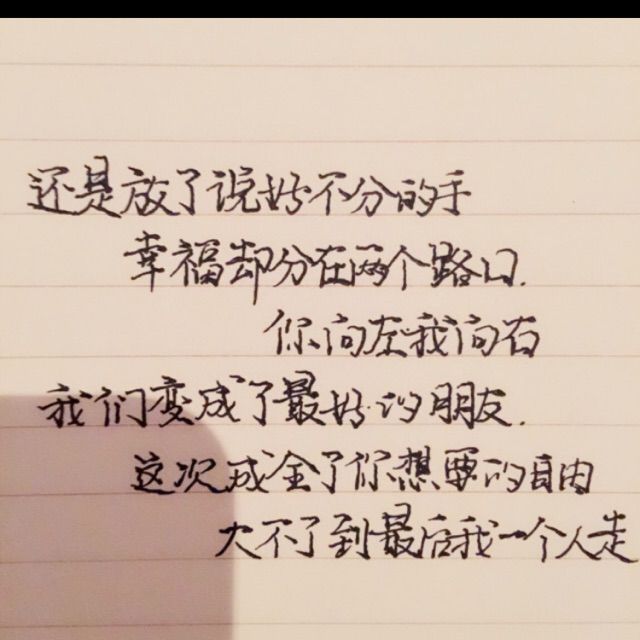 还是放了说好不分的手
幸福却分在两个路口.
你向左我向右
我们变成了最好的朋友.
这次成全了你想要的自由
大不了到最后我一个人走